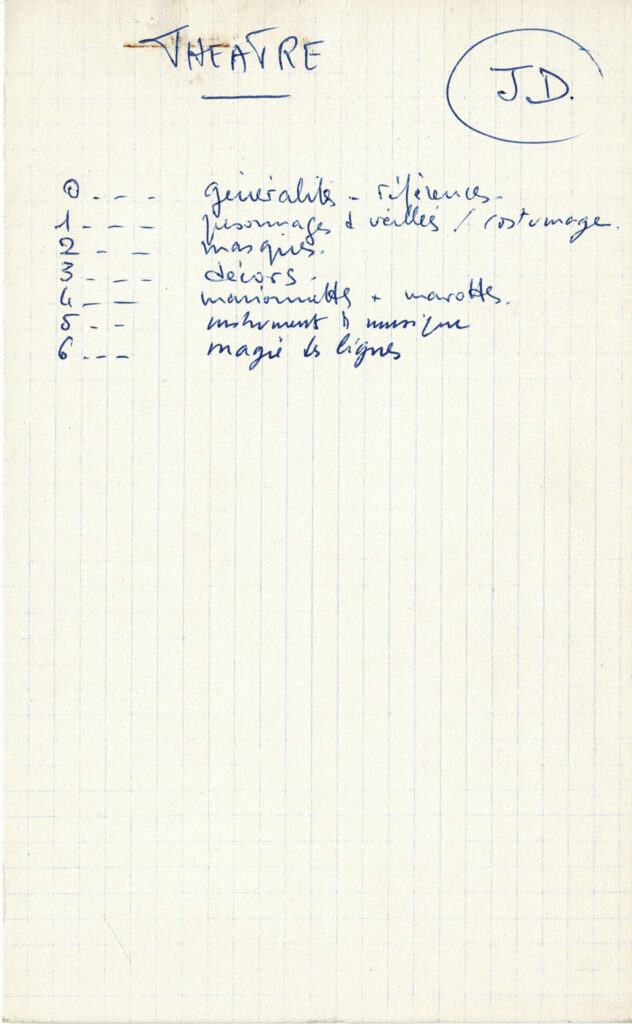 THEATRE
J.D.
0 - - - généralités - références.
1 - - - personnages d veillés / costumage.
2 - - - masques.
3 - - - décors.
4 - - - marionnettes + marottes.
5 - - - instrument à musique
6 - - - magie des lignes